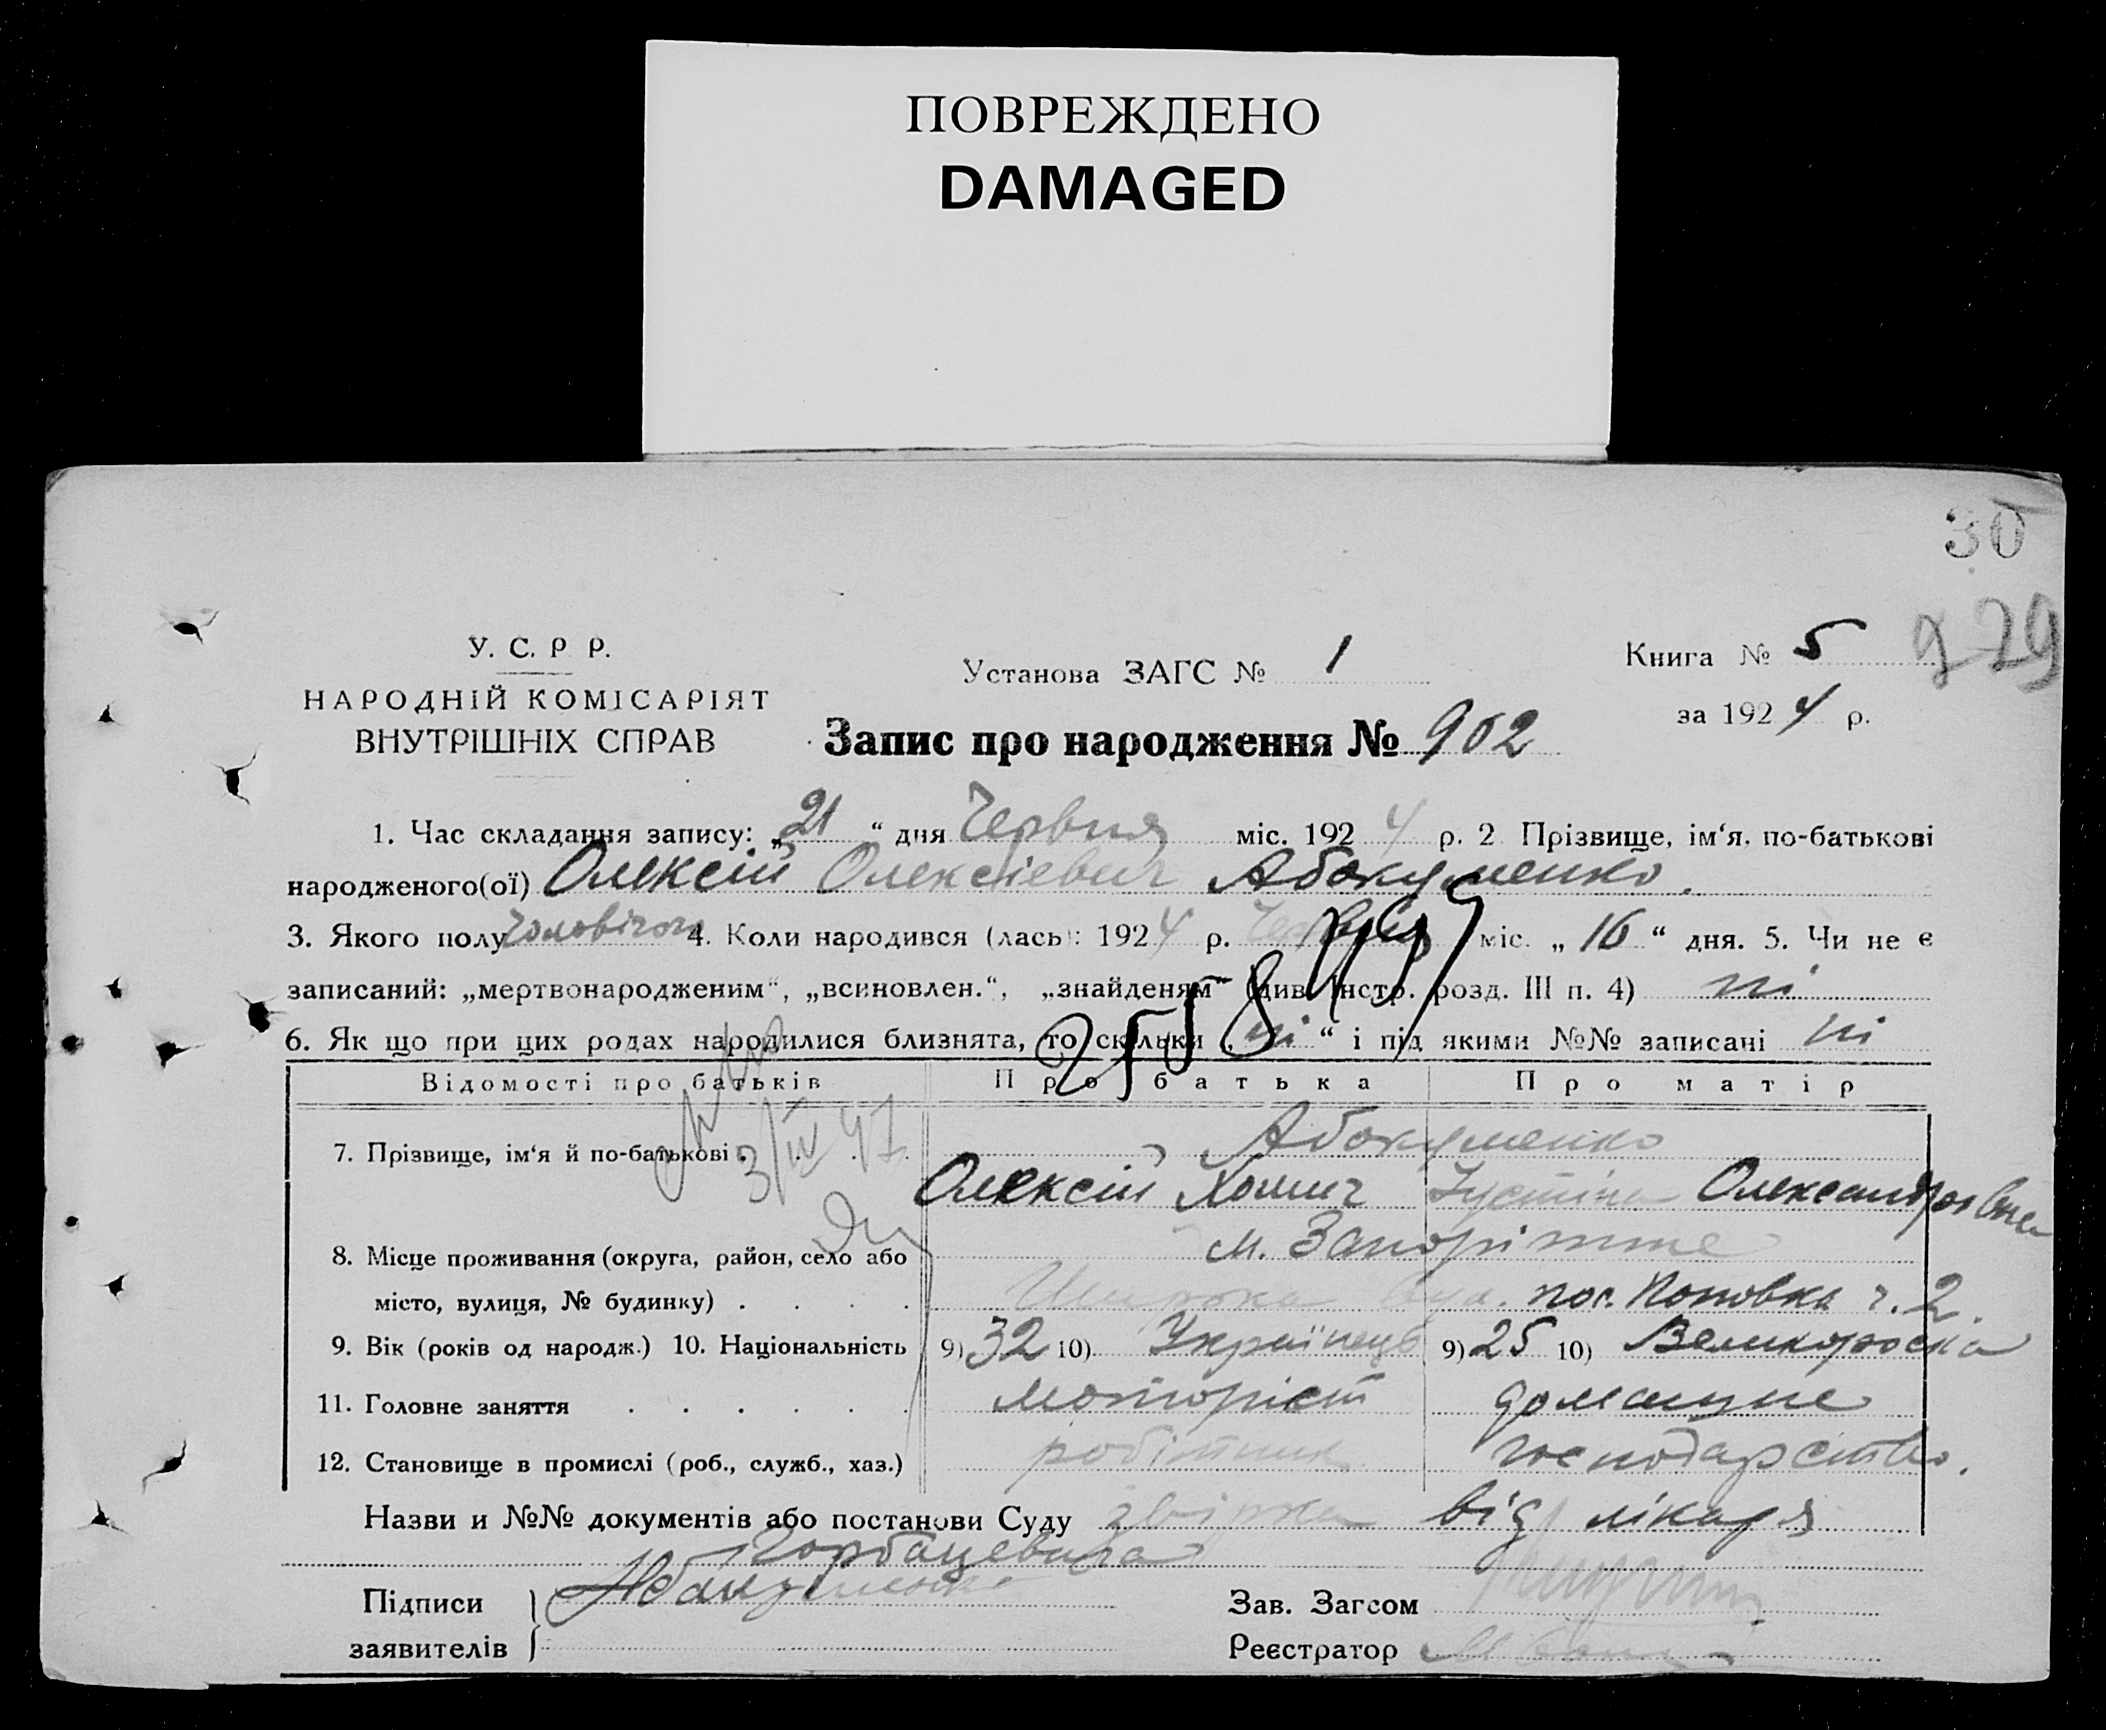 ПОВРЕЖДЕНО
DAMAGED
30
229
У. С. Р Р.
НАРОДНІЙ КОМІСАРІЯТ
ВНУТРІШНІХ СПРАВ
Установа ЗАГС № 1
Книга № 5
за 1924 р.
Запис про народження № 902
1. Час складання запису: „21“ дня Червня міс. 1924 р. 2 Прізвище, ім‘я, по-батькові
народженого(ої) Олексій Олексіевич Абакуменко.
3. Якого полу чоловічого 4. Коли народився (лась): 1924 р. Червня міс. „16“ дня. 5. Чи не є
записаний: „мертвонародженим“, „всиновлен.“, „знайденям“ (див. Інстр. розд. III п. 4) ні
6. Як що при цих родах народилися близнята, то скільки „ні“ і під якими №№ записані ні
Відомості про батьків Про батька Про матір
7. Прізвище, ім‘я й по-батькові . . . Абакуменко
3/IV 47
Олексій Хомич Устіна Олександровна
8. Місце проживання (округа, район, село або м. Запоріжже
місто, вулиця, № будинку) . . . . Широка вул. пос. Поповка ч. 2.
9. Вік (років од народж.) 10. Національність 9) 32 10) Українець 9) 25 10) Великороска
11. Головне заняття . . . . . . моторіст домашне
12. Становище в промислі (роб., служб., хаз.) робітник господарство.
Назви и №№ документів або постанови Суду від лікаря
Горбацевича
Підписи
заявителів
Абакуменко
Зав. Загсом
Реєстратор